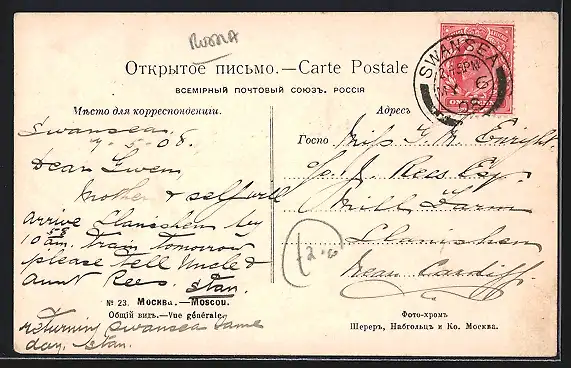 Russia
Открытое письмо. — Carte Postale
ВСЕМІРНЫЙ ПОЧТОВЫЙ СОЮЗЪ. РОССІЯ
SWANSEA
MY 6
08
ONE PENNY
Мѣсто для корреспонденціи.
Swansea
5-08.
Dear Gwen
Mother & self will
arrive Llanishen by
10 58 am. train tomorrow
please tell Uncle &
Aunt Rees. Stan.
returning Swansea same
day. Stan.
Адресъ
Госпо
Miss G. M. Enright
c/o J. Rees Esq.
Mill Farm
Llanishen
Near Cardiff.
2.00
№ 23. Москва. — Moscou.
Общій видъ. — Vue générale.
Фото-хромъ
Шереръ, Набгольцъ и Ко. Москва.